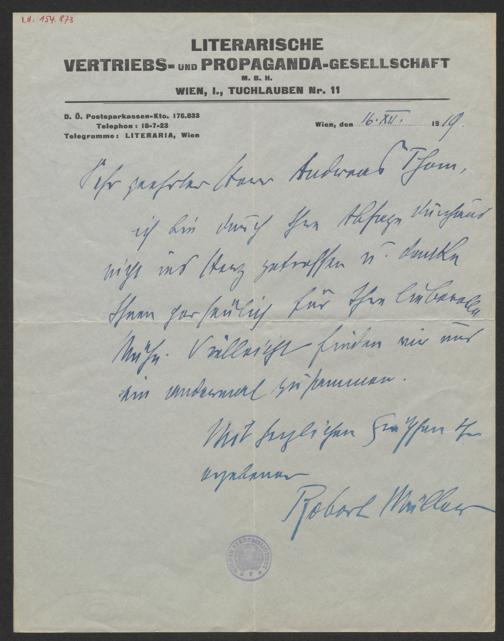 I.N. 154.873
LITERARISCHE
VERTRIEBS- UND PROPAGANDA-GESELLSCHAFT
M. B. H.
WIEN, I., TUCHLAUBEN Nr. 11
D. Ö. Postsparkassen-Kto. 176.833
Telephon: 18-7-23
Telegramme: LITERARIA, Wien
Wien, den 16. XII. 1919.
Sehr geehrter Herr Andreas Thom,
ich bin durch Ihre Absage durchaus
nicht ins Herz getroffen u. danke
Ihnen herzlich für Ihre
Mühe. Vielleicht finden wir uns
ein andermal zusammen.
Mit herzlichen Grüßen Ihr
ergebener
Robert Müller